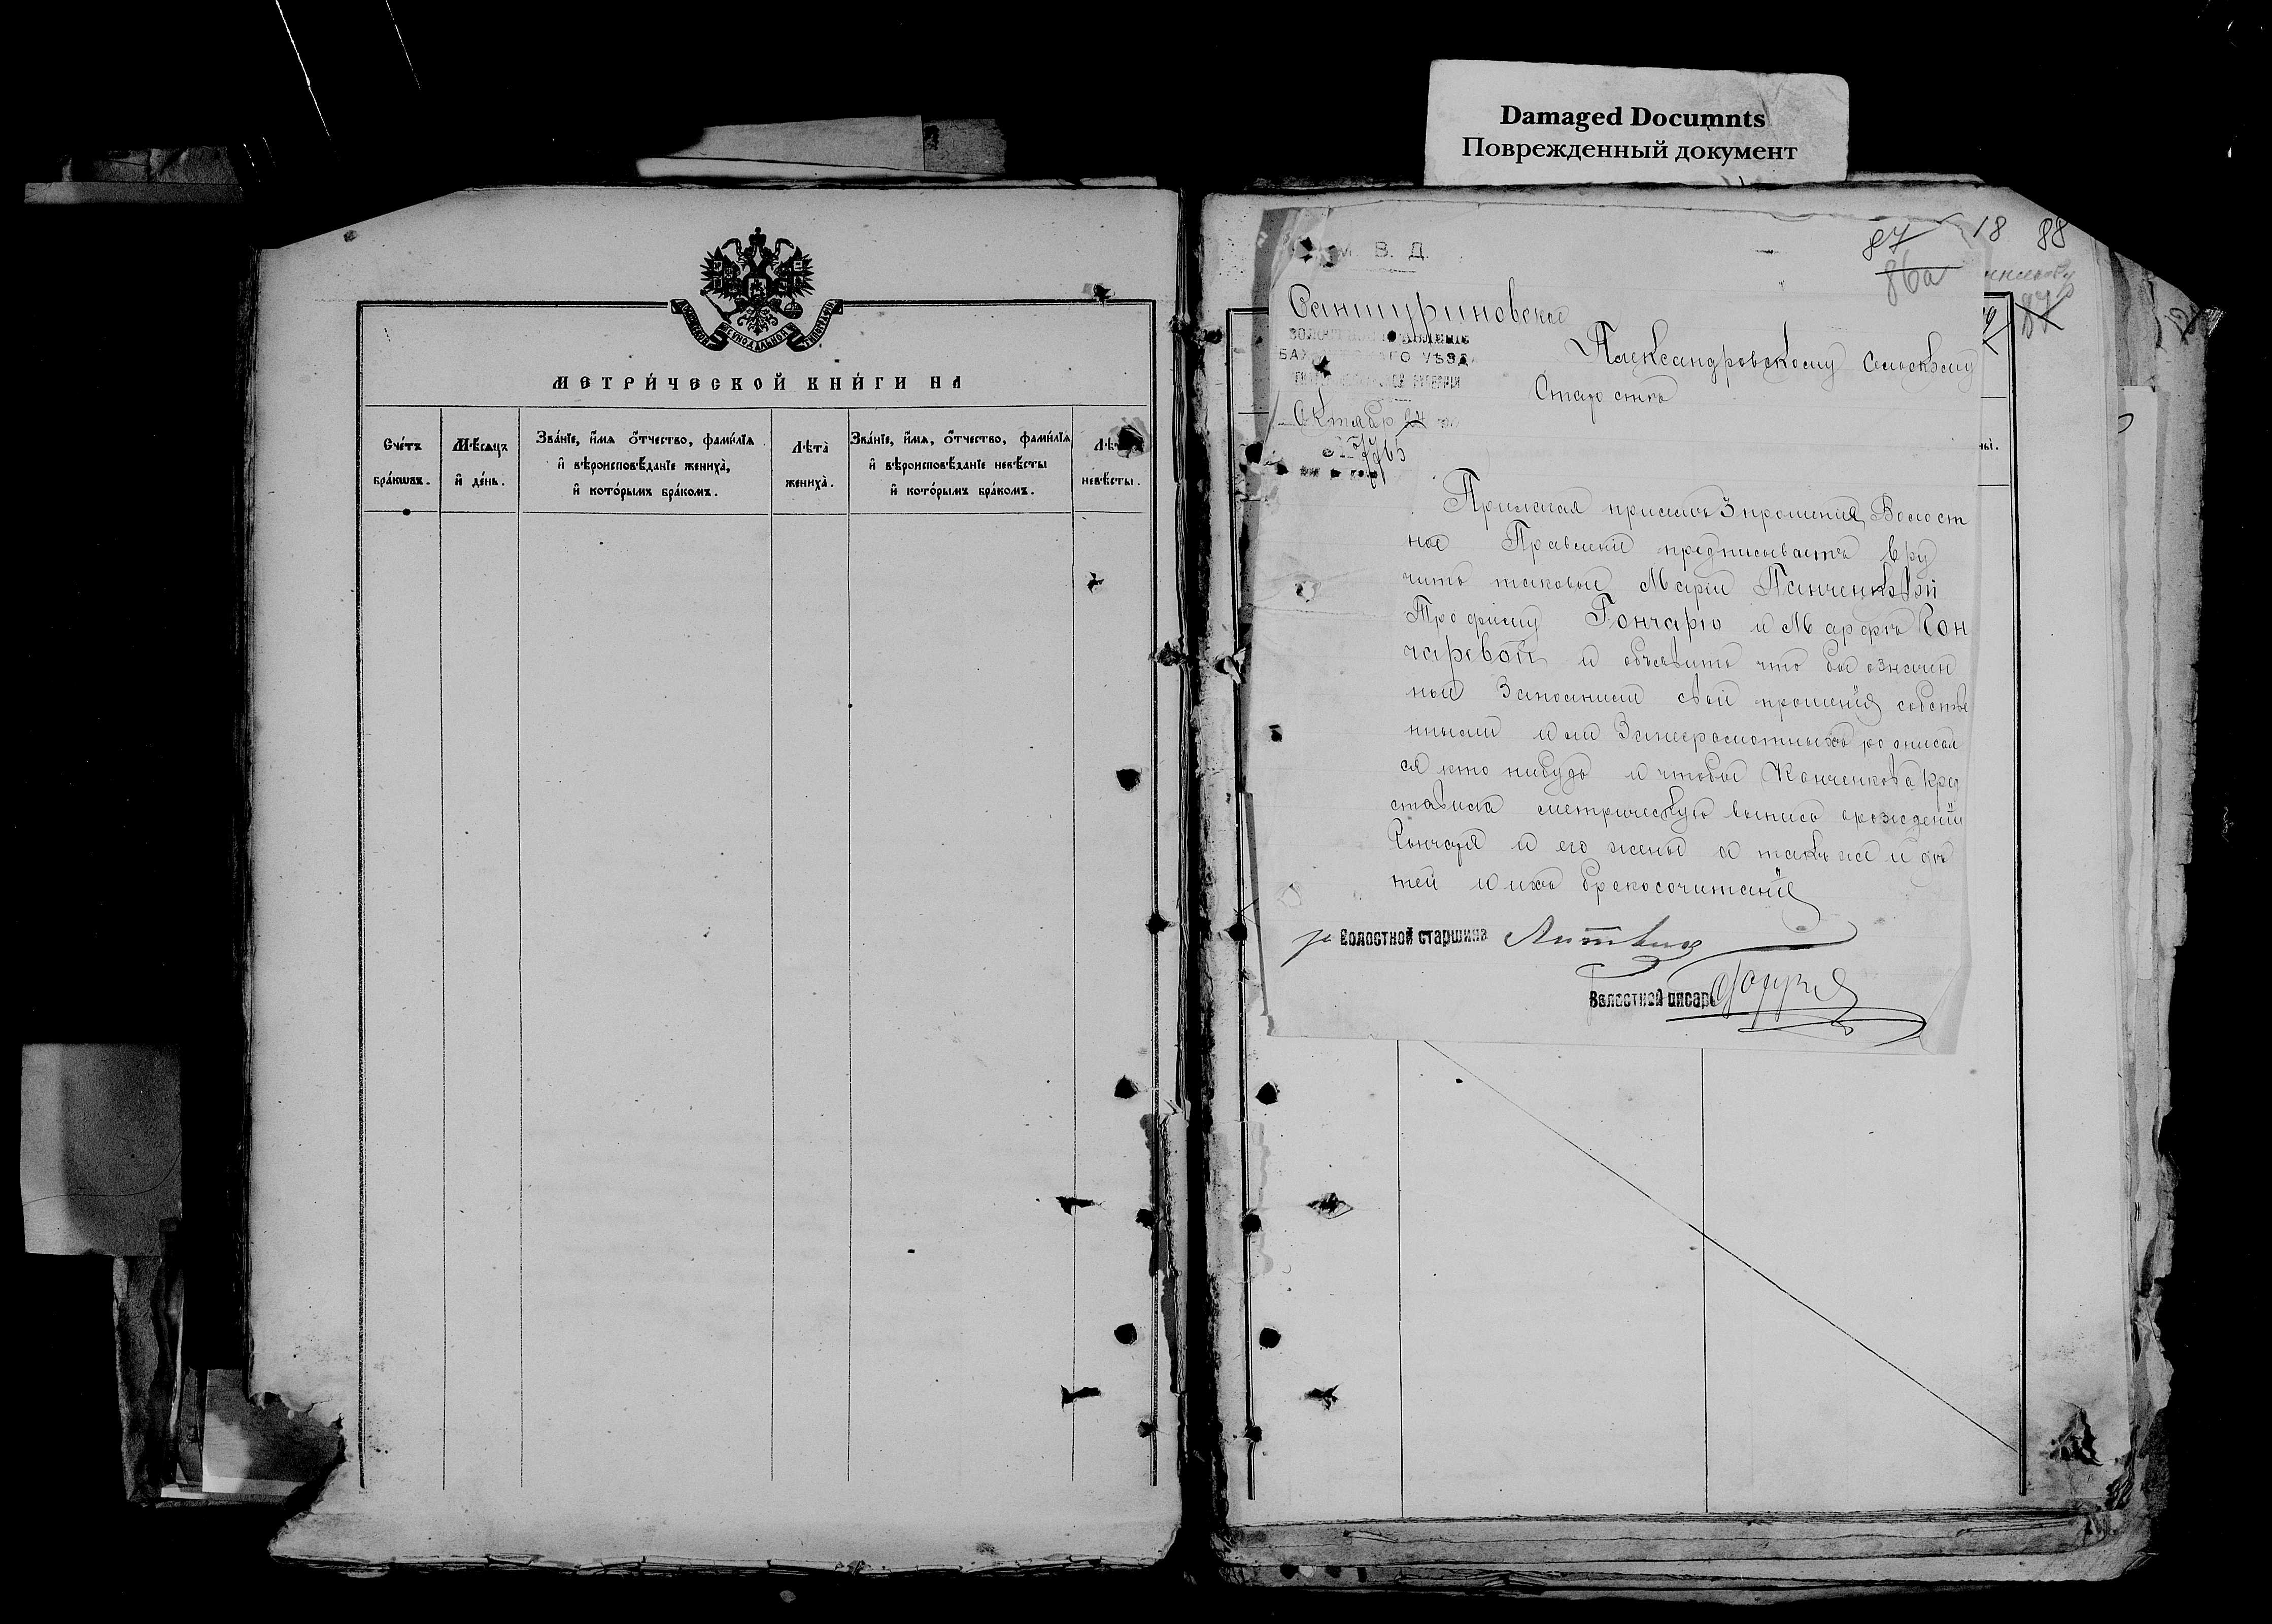 Damaged Documnts
Поврежденный документ
МЕТРИ́ЧЕСКОЙ КНИ́ГИ НА
Сче́тъ бра́кѡвъ.
Мѣ́сѧцъ и҆ де́нь.
Зва́нїе, и҆́мѧ ѻ҆́тчество, фами́лїѧ и҆ вѣроисповѣ́данїе жениха̀, и҆ кото́рымъ бра́комъ.
Лѣта̀ жениха̀.
Зва́нїе, и҆́мѧ, ѻ҆́тчество, фами́лїѧ и҆ вѣроисповѣ́данїе невѣ́сты и҆ кото́рымъ бра́комъ.
невѣ́сты.
87 18 88
86а
М. В. Д.
Сантуриновское
ВОЛОСТНОЕ ПРАВЛЕНІЕ
УѢЗДА
Александровскому Сельскому
Старостѣ
Октября 24
7765
Прилагая присемъ 3 прошенія, Волост
ное Правленіе предписываетъ вру
чить таковые Маріи Панченковой
Трофиму Гончарю и Марфѣ Гон
чаревой и объявить что бы означен
ные Заполнили свои прошенія собстве
нными или Занеграмотныхъ росписал
ся кто нибудь и чтобы Панченкова пред
ставила метрическую выпись орожденіи
Гончаря и его жены а такъ же и дѣ
тей и ихъ бракосочитанія
Волостной старшина Литвин
Волостной писарь